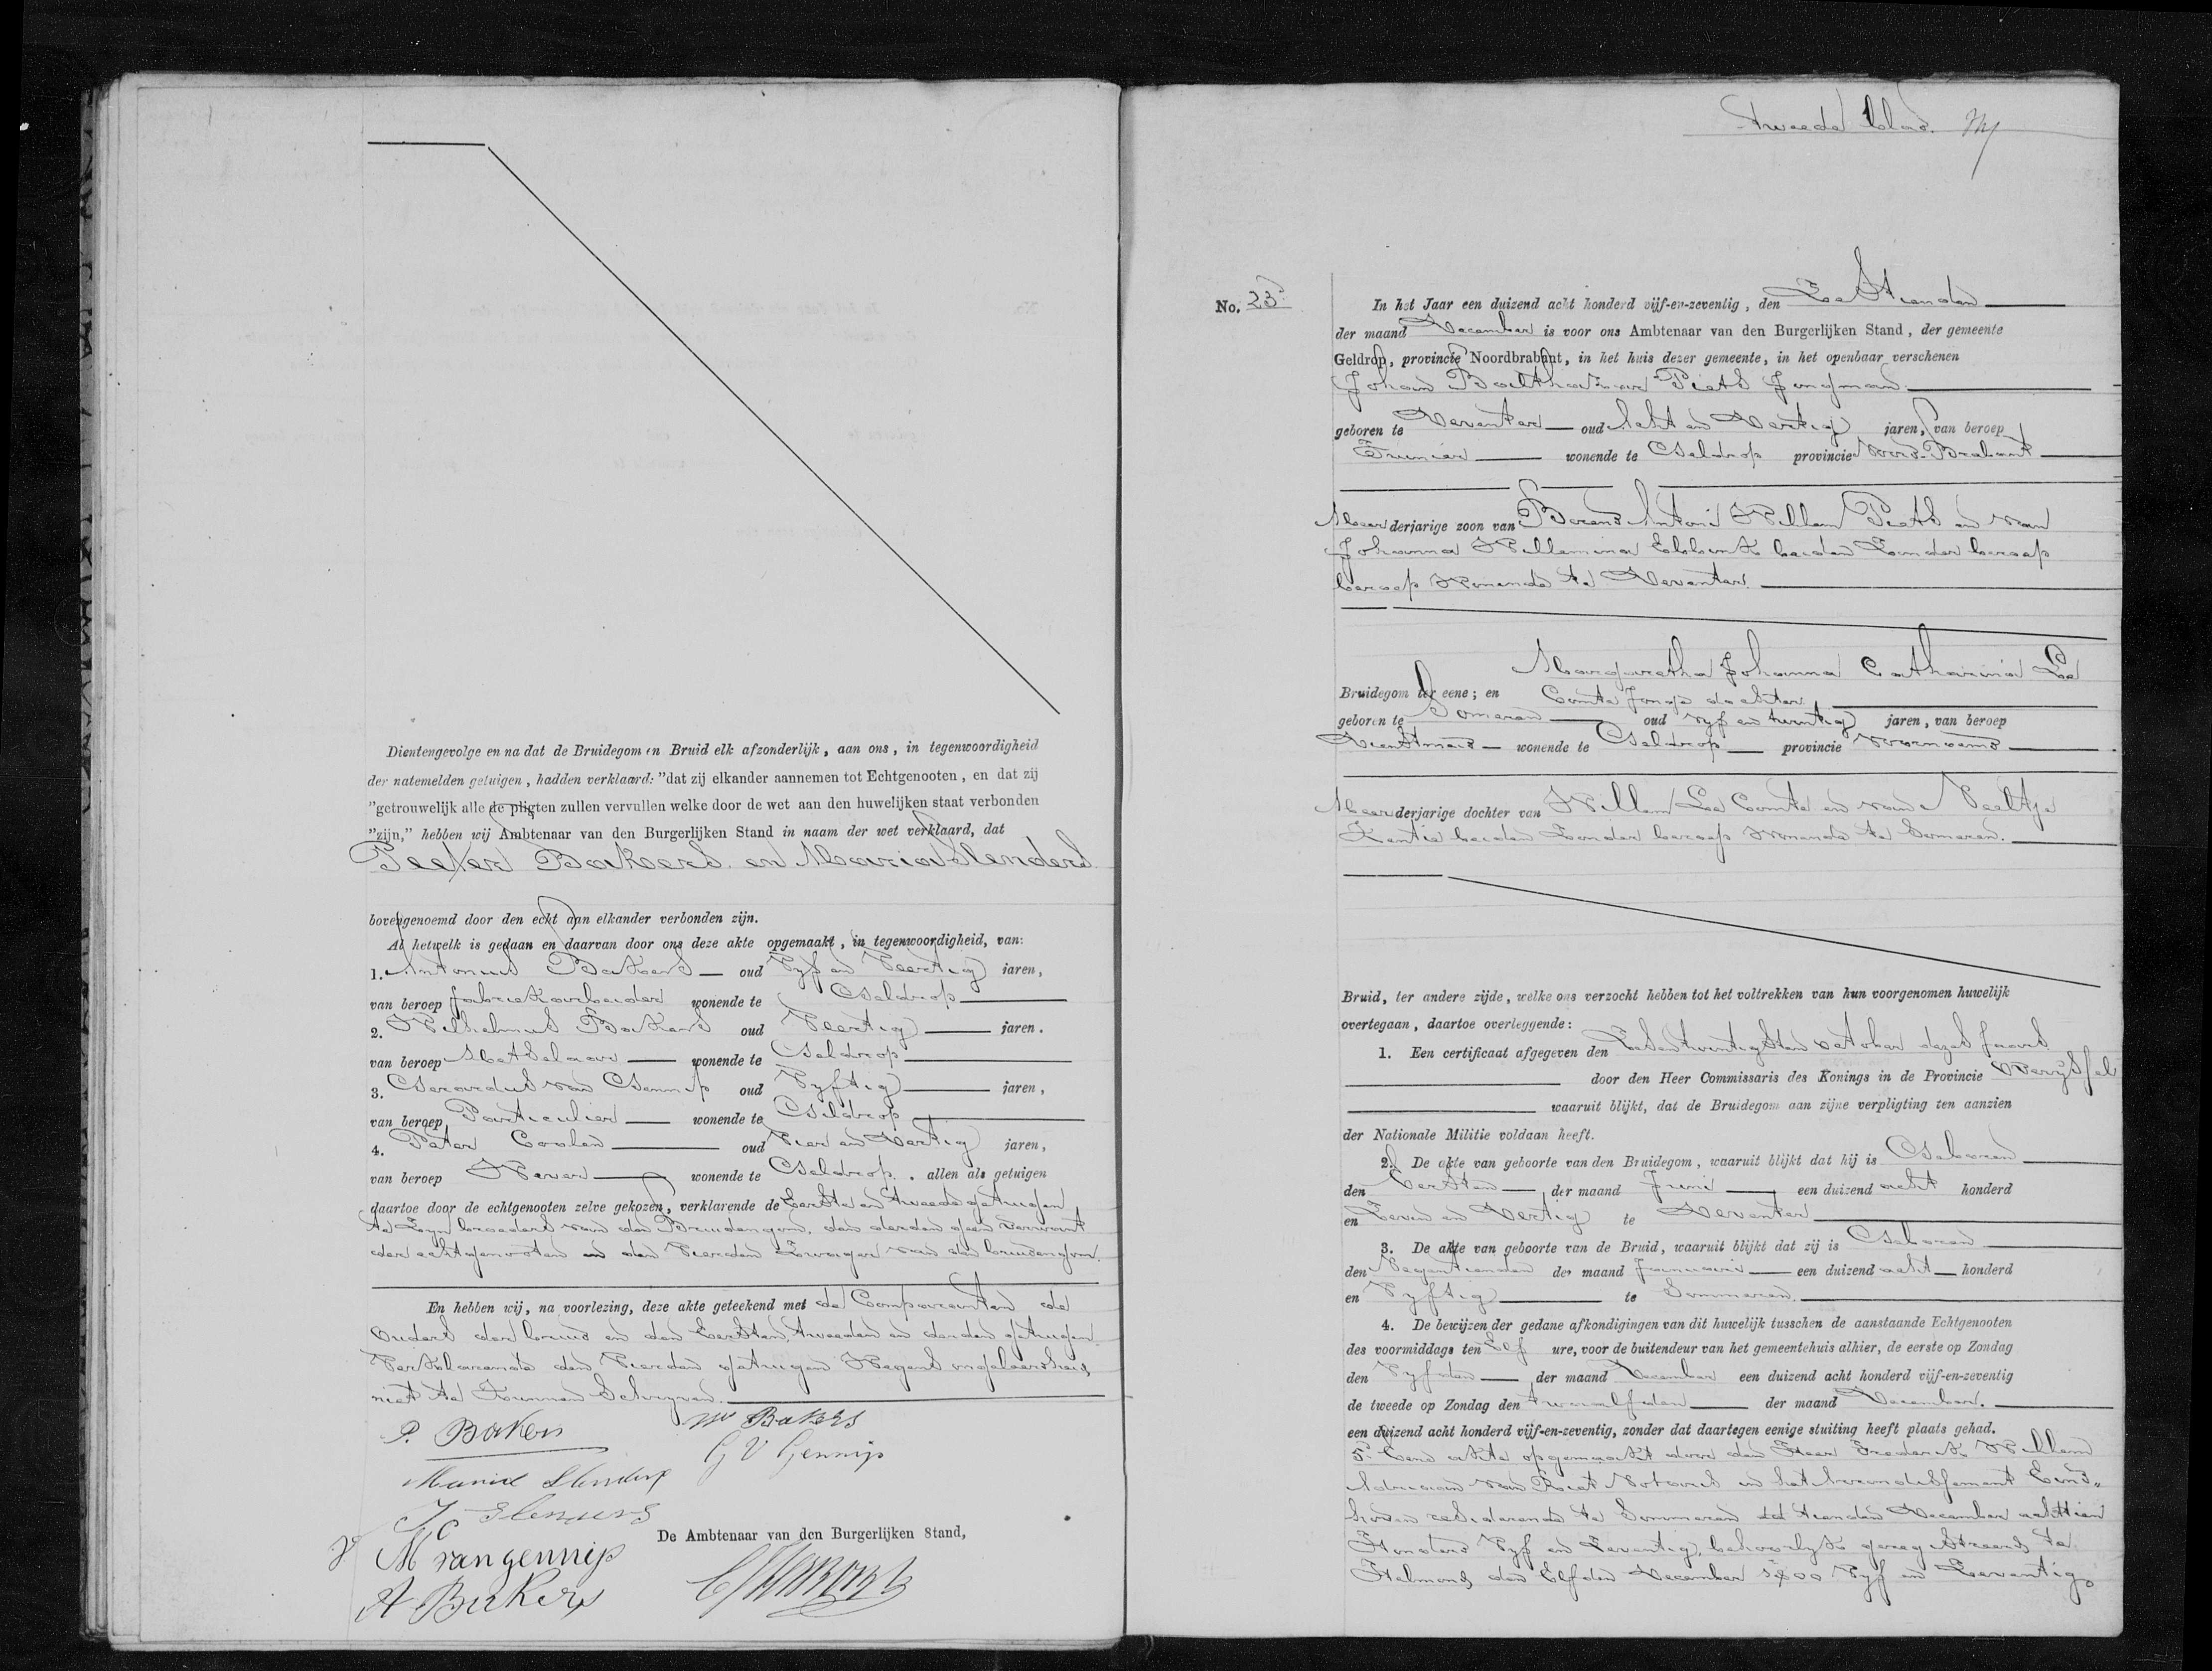 Dientengevolge en na dat de Bruidegom en Bruid elk afzonderlijk, aan ons, in tegenwoordigheid
der natemelden getuigen, hadden verklaard: "dat zij elkander aannemen tot Echtgenooten, en dat zij
"getrouwelijk alle de pligten zullen vervullen welke door de wet aan den huwelijken staat verbonden
"zijn," hebben wij Ambtenaar van den Burgerlijken Stand in naam der wet verklaard, dat
Peeter Bakers en Maria Slenders
bovengenoemd door den echt aan elkander verbonden zijn.
Al hetwelk is gedaan en daarvan door ons deze akte opgemaakt, in tegenwoordigheid, van:
1. Antonius Bakers oud Vyf en Veertig jaren,
van beroep fabriekarbeider wonende te Geldrop
2. Wilhelmus Bakers oud Veertig jaren.
van beroep Metselaar wonende te Geldrop
3. Gerardus van Gennip oud Vyftig jaren,
van beroep Particulier wonende te Geldrop
4. Peter Coolen oud Vier en Dertig jaren,
van beroep Wever wonende te Geldrop. allen als getuigen
daartoe door de echtgenooten zelve gekozen, verklarende de Eerste en tweede getuigen
te Zyn broeders van den Bruidengom, den derden geen verwant
der echtgenooten en den Vierden Zwager van den bruidengom.
En hebben wij, na voorlezing, deze akte geteekend met de Comparanten de
Ouders der bruid en den Eersten, tweeden en derden getuigen
Verklarende den Vierden getuigen Wegens ongeleerdheid
niet te kunnen Schryven.
P. Bakers
W Bakers
G V Gennip
Maria Slenders
J Slenders
M C van gennip
A Bakers
De Ambtenaar van den Burgerlijken Stand,
Tweede blad.
No. 23.
In het Jaar een duizend acht honderd vijf-en-zeventig, den Zestienden
der maand December is voor ons Ambtenaar van den Burgerlijken Stand, der gemeente
Geldrop, provincie Noordbrabant, in het huis dezer gemeente, in het openbaar verschenen
Johan Balthazar Piets Jongman
geboren te Deventer oud Acht en Dertig jaren, van beroep
wonende te Geldrop provincie Nord-Brabant
Meerderjarige zoon van Berend Antoni Willem Piets en van
Johanna Willemina Ebbink beiden Zonder beroep
beroep Wonende te Deventer
Margaretha Johanna Catharina Le
Bruidegom ter eene; en Comte Jonge dochter
geboren te Someren oud vyf en twintig jaren, van beroep
Dienstmeid wonende te Geldrop provincie voornoemd
Meerderjarige dochter van Willem Le Comte en van Neeltje
Kentie beiden Zonder beroep Wonende te Someren.
Bruid, ter andere zijde, welke ons verzocht hebben tot het voltrekken van hun voorgenomen huwelijk
overtegaan, daartoe overleggende:
1. Een certificaat afgegeven den Zesentwintigsten october dezes Jaars
door den Heer Commissaris des Konings in de Provincie Overijssel
waaruit blijkt, dat de Bruidegom aan zijne verpligting ten aanzien
der Nationale Militie voldaan heeft.
2. De akte van geboorte van den Bruidegom, waaruit blijkt dat hij is Geboren
den Eersten der maand Juni een duizend acht honderd
en Zeven en Dertig te Deventer
3. De akte van geboorte van de Bruid, waaruit blijkt dat zij is Geboren
den Negentienden der maand Januari een duizend acht honderd
en Vyftig te Sommeren.
4. De bewijzen der gedane afkondigingen van dit huwelijk tusschen de aanstaande Echtgenooten
des voormiddags ten Elf ure, voor de buitendeur van het gemeentehuis alhier, de eerste op Zondag
den Vyfden der maand December een duizend acht honderd vijf-en-zeventig
de tweede op Zondag den twaalfden der maand December.
een duizend acht honderd vijf-en-zeventig, zonder dat daartegen eenige stuiting heeft plaats gehad.
5e Eene akte opgemaakt door den Heer Frederik Willem
Adriaan van Riet Notaris in het arrondissement Eind=
hoven resideerende te Sommeren dd tienden December achttien
Honderd Vyf en Zeventig, behoorlyk geregistreerd te
Helmond den Elfden December 1800 Vyf en Zeventig